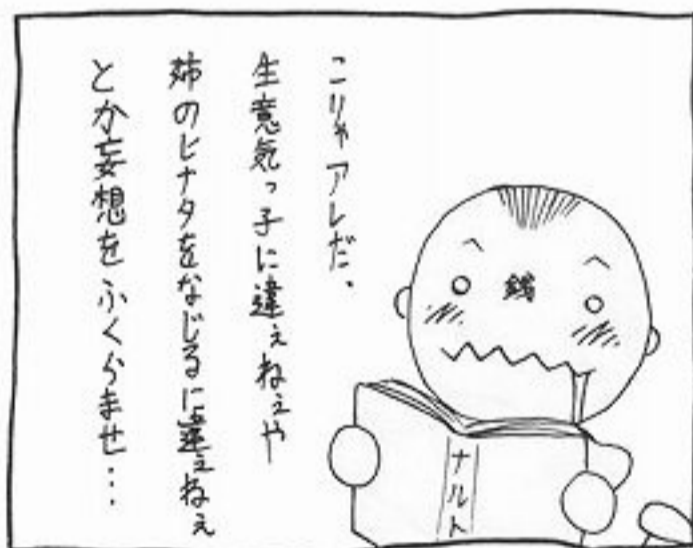 こりゃアレだ、
生意気っ子に違ぇねぇや
姉のヒナタをなじるに違ぇねぇ
とか妄想をふくらませ…
銭
ナルト